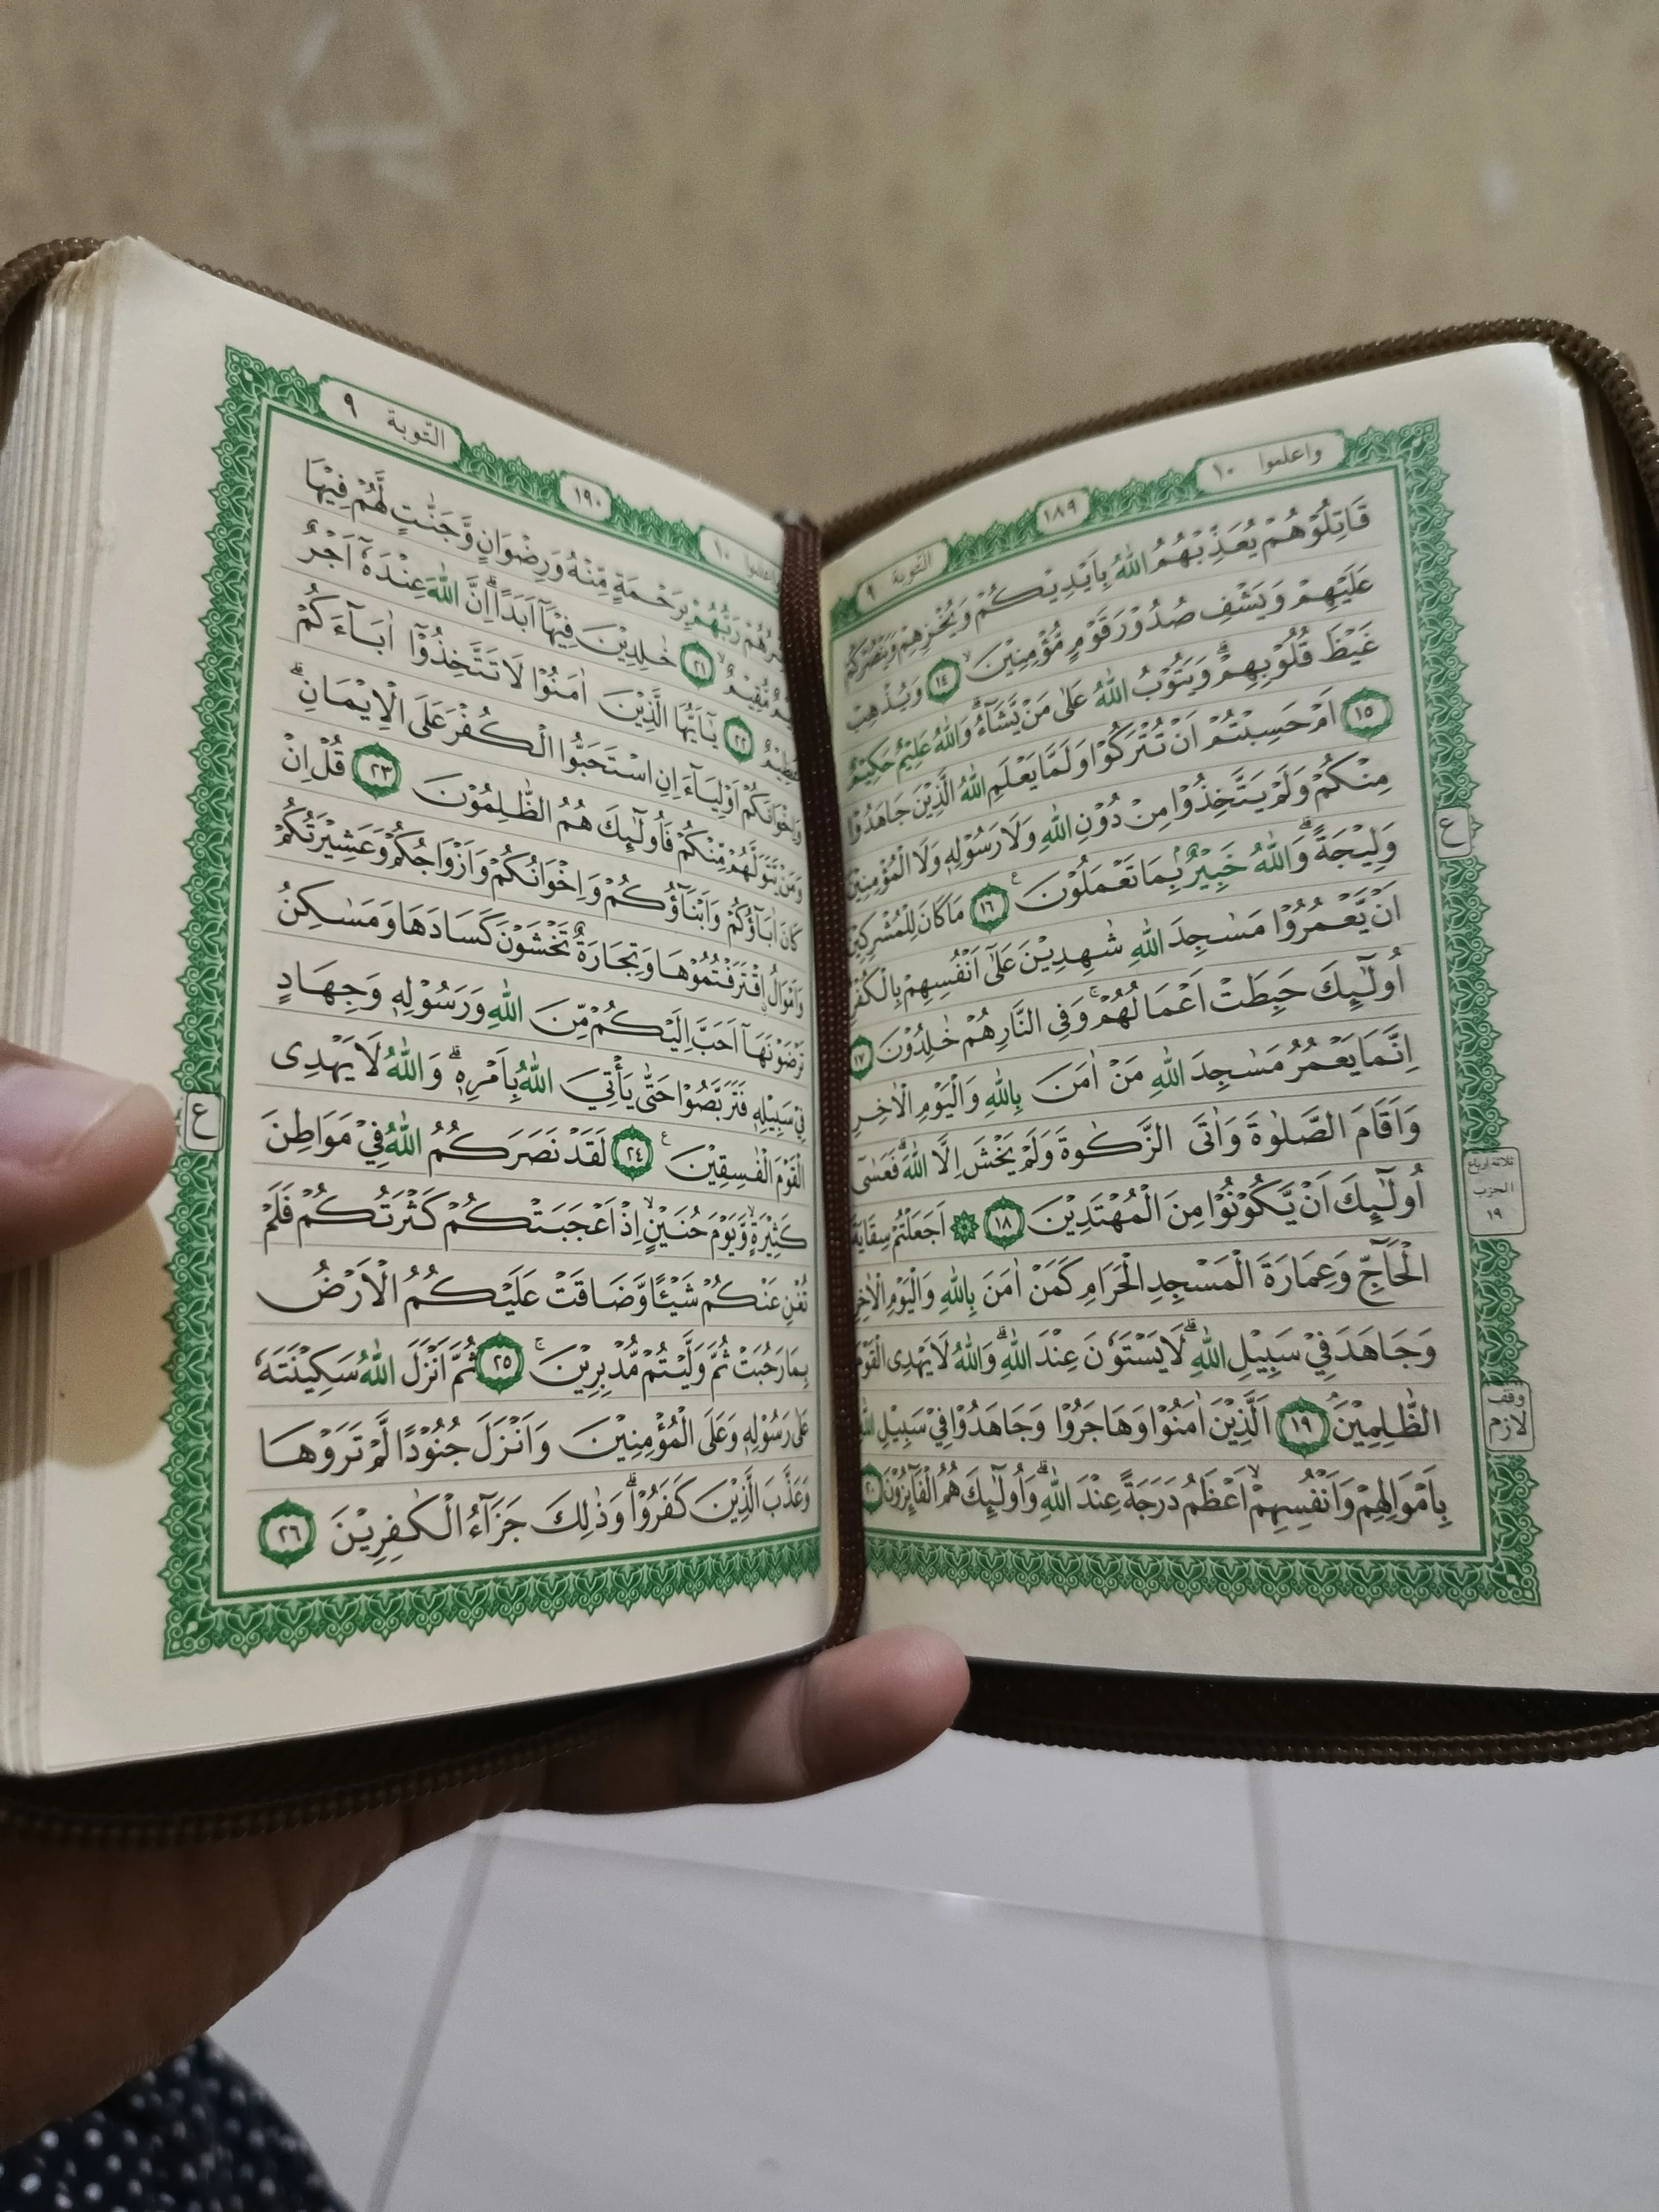 واعلموا ١٠
١٨٩
التوبة ٩
قَاتِلُوْهُمْ يُعَذِّبْهُمُ اللّٰهُ بِاَيْدِيْكُمْ وَيُخْزِهِمْ وَيَنْصُرْكُمْ
عَلَيْهِمْ وَيَشْفِ صُدُوْرَ قَوْمٍ مُّؤْمِنِيْنَۙ ١٤ وَيُذْهِبْ
غَيْظَ قُلُوْبِهِمْۗ وَيَتُوْبُ اللّٰهُ عَلٰى مَنْ يَّشَاۤءُۗ وَاللّٰهُ عَلِيْمٌ حَكِيْمٌ
١٥ اَمْ حَسِبْتُمْ اَنْ تُتْرَكُوْا وَلَمَّا يَعْلَمِ اللّٰهُ الَّذِيْنَ جَاهَدُوْا
مِنْكُمْ وَلَمْ يَتَّخِذُوْا مِنْ دُوْنِ اللّٰهِ وَلَا رَسُوْلِهٖ وَلَا الْمُؤْمِنِيْنَ
وَلِيْجَةًۗ وَاللّٰهُ خَبِيْرٌۢ بِمَا تَعْمَلُوْنَࣖ ١٦ مَا كَانَ لِلْمُشْرِكِيْنَ
اَنْ يَّعْمُرُوْا مَسٰجِدَ اللّٰهِ شٰهِدِيْنَ عَلٰٓى اَنْفُسِهِمْ بِالْكُفْرِ
اُولٰۤىِٕكَ حَبِطَتْ اَعْمَالُهُمْۚ وَفِى النَّارِ هُمْ خٰلِدُوْنَ ١٧
اِنَّمَا يَعْمُرُ مَسٰجِدَ اللّٰهِ مَنْ اٰمَنَ بِاللّٰهِ وَالْيَوْمِ الْاٰخِرِ
وَاَقَامَ الصَّلٰوةَ وَاٰتَى الزَّكٰوةَ وَلَمْ يَخْشَ اِلَّا اللّٰهَۗ فَعَسٰٓى
اُولٰۤىِٕكَ اَنْ يَّكُوْنُوْا مِنَ الْمُهْتَدِيْنَ ١٨ ۞ اَجَعَلْتُمْ سِقَايَةَ
الْحَاۤجِّ وَعِمَارَةَ الْمَسْجِدِ الْحَرَامِ كَمَنْ اٰمَنَ بِاللّٰهِ وَالْيَوْمِ الْاٰخِرِ
وَجَاهَدَ فِيْ سَبِيْلِ اللّٰهِۗ لَا يَسْتَوٗنَ عِنْدَ اللّٰهِۗ وَاللّٰهُ لَا يَهْدِى الْقَوْمَ
الظّٰلِمِيْنَۘ ١٩ اَلَّذِيْنَ اٰمَنُوْا وَهَاجَرُوْا وَجَاهَدُوْا فِيْ سَبِيْلِ اللّٰهِ
بِاَمْوَالِهِمْ وَاَنْفُسِهِمْۙ اَعْظَمُ دَرَجَةً عِنْدَ اللّٰهِۗ وَاُولٰۤىِٕكَ هُمُ الْفَاۤىِٕزُوْنَ ٢٠
ع
ثلاثة ارباع
الحزب
١٩
وقف
لازم
واعلموا ١٠
١٩٠
التوبة ٩
رَبُّهُمْ بِرَحْمَةٍ مِّنْهُ وَرِضْوَانٍ وَّجَنّٰتٍ لَّهُمْ فِيْهَا
مُّقِيْمٌۙ ٢١ خٰلِدِيْنَ فِيْهَآ اَبَدًاۗ اِنَّ اللّٰهَ عِنْدَهٗٓ اَجْرٌ
عَظِيْمٌ ٢٢ يٰٓاَيُّهَا الَّذِيْنَ اٰمَنُوْا لَا تَتَّخِذُوْٓا اٰبَاۤءَكُمْ
وَاِخْوَانَكُمْ اَوْلِيَاۤءَ اِنِ اسْتَحَبُّوا الْكُفْرَ عَلَى الْاِيْمَانِۗ
وَمَنْ يَّتَوَلَّهُمْ مِّنْكُمْ فَاُولٰۤىِٕكَ هُمُ الظّٰلِمُوْنَ ٢٣ قُلْ اِنْ
كَانَ اٰبَاۤؤُكُمْ وَاَبْنَاۤؤُكُمْ وَاِخْوَانُكُمْ وَاَزْوَاجُكُمْ وَعَشِيْرَتُكُمْ
وَاَمْوَالُ ِۨاقْتَرَفْتُمُوْهَا وَتِجَارَةٌ تَخْشَوْنَ كَسَادَهَا وَمَسٰكِنُ
تَرْضَوْنَهَآ اَحَبَّ اِلَيْكُمْ مِّنَ اللّٰهِ وَرَسُوْلِهٖ وَجِهَادٍ
فِيْ سَبِيْلِهٖ فَتَرَبَّصُوْا حَتّٰى يَأْتِيَ اللّٰهُ بِاَمْرِهٖۗ وَاللّٰهُ لَا يَهْدِى
الْقَوْمَ الْفٰسِقِيْنَࣖ ٢٤ لَقَدْ نَصَرَكُمُ اللّٰهُ فِيْ مَوَاطِنَ
كَثِيْرَةٍۙ وَّيَوْمَ حُنَيْنٍۙ اِذْ اَعْجَبَتْكُمْ كَثْرَتُكُمْ فَلَمْ
تُغْنِ عَنْكُمْ شَيْـًٔا وَّضَاقَتْ عَلَيْكُمُ الْاَرْضُ
بِمَا رَحُبَتْ ثُمَّ وَلَّيْتُمْ مُّدْبِرِيْنَۚ ٢٥ ثُمَّ اَنْزَلَ اللّٰهُ سَكِيْنَتَهٗ
عَلٰى رَسُوْلِهٖ وَعَلَى الْمُؤْمِنِيْنَ وَاَنْزَلَ جُنُوْدًا لَّمْ تَرَوْهَا
وَعَذَّبَ الَّذِيْنَ كَفَرُوْاۗ وَذٰلِكَ جَزَاۤءُ الْكٰفِرِيْنَ ٢٦
ع